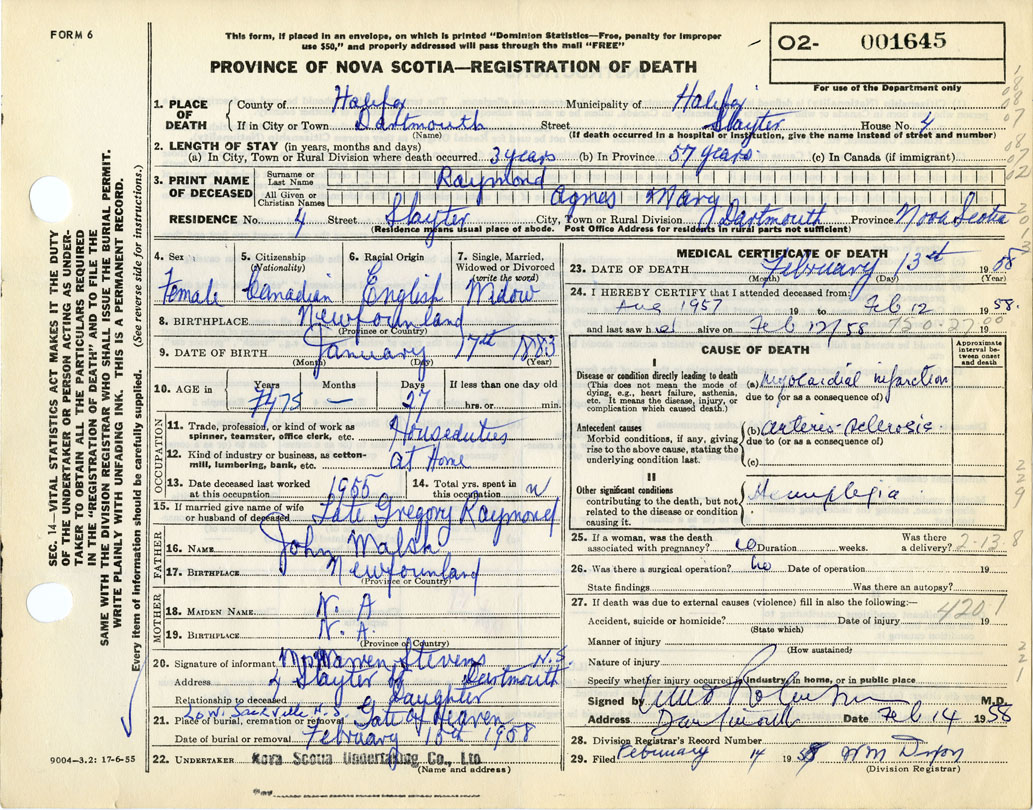 FORM 6
This form, if placed in an envelope, on which is printed "Dominion Statistics—Free, penalty for improper
use $50," and properly addressed will pass through the mail "FREE"
O2- 001645
For use of the Department only
PROVINCE OF NOVA SCOTIA—REGISTRATION OF DEATH
1. PLACE OF DEATH County of Halifax Municipality of Halifax
If in City or Town Dartmouth Street Slayter House No. 4
(Name) (If death occurred in a hospital or institution, give the name instead of street and number)
2. LENGTH OF STAY (in years, months and days)
(a) In City, Town or Rural Division where death occurred 3 years (b) In Province 57 years. (c) In Canada (if immigrant)
3. PRINT NAME OF DECEASED Surname or Last Name Raymond
All Given or Christian Names Agnes Mary
RESIDENCE No. 4 Street Slayter City, Town or Rural Division Dartmouth Province Nova Scotia
(Residence means usual place of abode. Post Office Address for residents in rural parts not sufficient)
4. Sex 5. Citizenship (Nationality) 6. Racial Origin 7. Single, Married, Widowed or Divorced (write the word)
Female Canadian English Widow
8. BIRTHPLACE Newfounland
(Province or Country)
9. DATE OF BIRTH January 17th 1883
(Month) (Day) (Year)
10. AGE in Years Months Days If less than one day old
75 — 27 hrs. or min.
OCCUPATION
11. Trade, profession, or kind of work as spinner, teamster, office clerk, etc. Houseduties
12. Kind of industry or business, as cotton-mill, lumbering, bank, etc. At Home
13. Date deceased last worked at this occupation 1955 14. Total yrs. spent in this occupation
15. If married give name of wife or husband of deceased Late Gregory Raymond
FATHER
16. NAME John Walsh
17. BIRTHPLACE Newfounland
(Province or Country)
MOTHER
18. MAIDEN NAME N. A
19. BIRTHPLACE N. A.
(Province of Country)
20. Signature of informant Warren Stevens N.S.
Address 4 Slayter St Dartmouth
Relationship to deceased Daughter
Sackville N.S.
21. Place of burial, cremation or removal Gate of Heaven
Date of burial or removal February 1958
22. UNDERTAKER Nova Scotia Undertaking Co., Ltd.
(Name and address)
MEDICAL CERTIFICATE OF DEATH
23. DATE OF DEATH February 13th 1958
(Month) (Day) (Year)
24. I HEREBY CERTIFY that I attended deceased from:
Aug 1957 19 to Feb 12 1958.
and last saw her alive on Feb 12/58 19
CAUSE OF DEATH
Approximate interval between onset and death
I
Disease or condition directly leading to death
(This does not mean the mode of dying, e.g., heart failure, asthenia, etc. It means the disease, injury, or complication which caused death.)
(a) Myocardial infarction
due to (or as a consequence of)
Antecedent causes
Morbid conditions, if any, giving rise to the above cause, stating the underlying condition last.
(b) arterio-sclerosis.
due to (or as a consequence of)
(c)
II
Other significant conditions
contributing to the death, but not related to the disease or condition causing it.
Hemiplegia
25. If a woman, was the death associated with pregnancy? Duration weeks. Was there a delivery? 2-13-8
26. Was there a surgical operation? no Date of operation 19
State findings Was there an autopsy?
27. If death was due to external causes (violence) fill in also the following:—
420.1
Accident, suicide or homicide? Date of injury 19
(State which)
Manner of injury
(How sustained)
Nature of injury
Specify whether injury occurred in industry in home, or in public place
Signed by M.D.
Address Dartmouth Date Feb 14 1958
28. Division Registrar's Record Number
29. Filed February 14 1958 WM Dixon
(Division Registrar)
SEC. 14—VITAL STATISTICS ACT MAKES IT THE DUTY
OF THE UNDERTAKER OR PERSON ACTING AS UNDER-
TAKER TO OBTAIN ALL THE PARTICULARS REQUIRED
IN THE "REGISTRATION OF DEATH" AND TO FILE THE
SAME WITH THE DIVISION REGISTRAR WHO SHALL ISSUE THE BURIAL PERMIT.
WRITE PLAINLY WITH UNFADING INK. THIS IS A PERMANENT RECORD.
Every item of information should be carefully supplied. (See reverse side for instructions.)
9004—3.2: 17-6-55